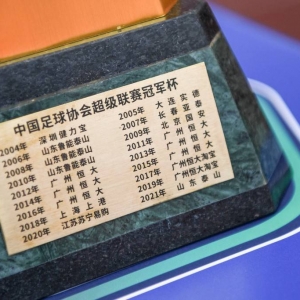 中国足球协会超级联赛冠军杯
2004年 深圳健力宝 2005年 大连实德
2006年 山东鲁能泰山 2007年 长春亚泰
2008年 山东鲁能泰山 2009年 北京国安
2010年 山东鲁能泰山 2011年 广州恒大
2012年 广州恒大 2013年 广州恒大
2014年 广州恒大 2015年 广州恒大
2016年 广州恒大 2017年 广州恒大淘宝
2018年 上海上港 2019年 广州恒大淘宝
2020年 江苏苏宁易购 2021年 山东泰山